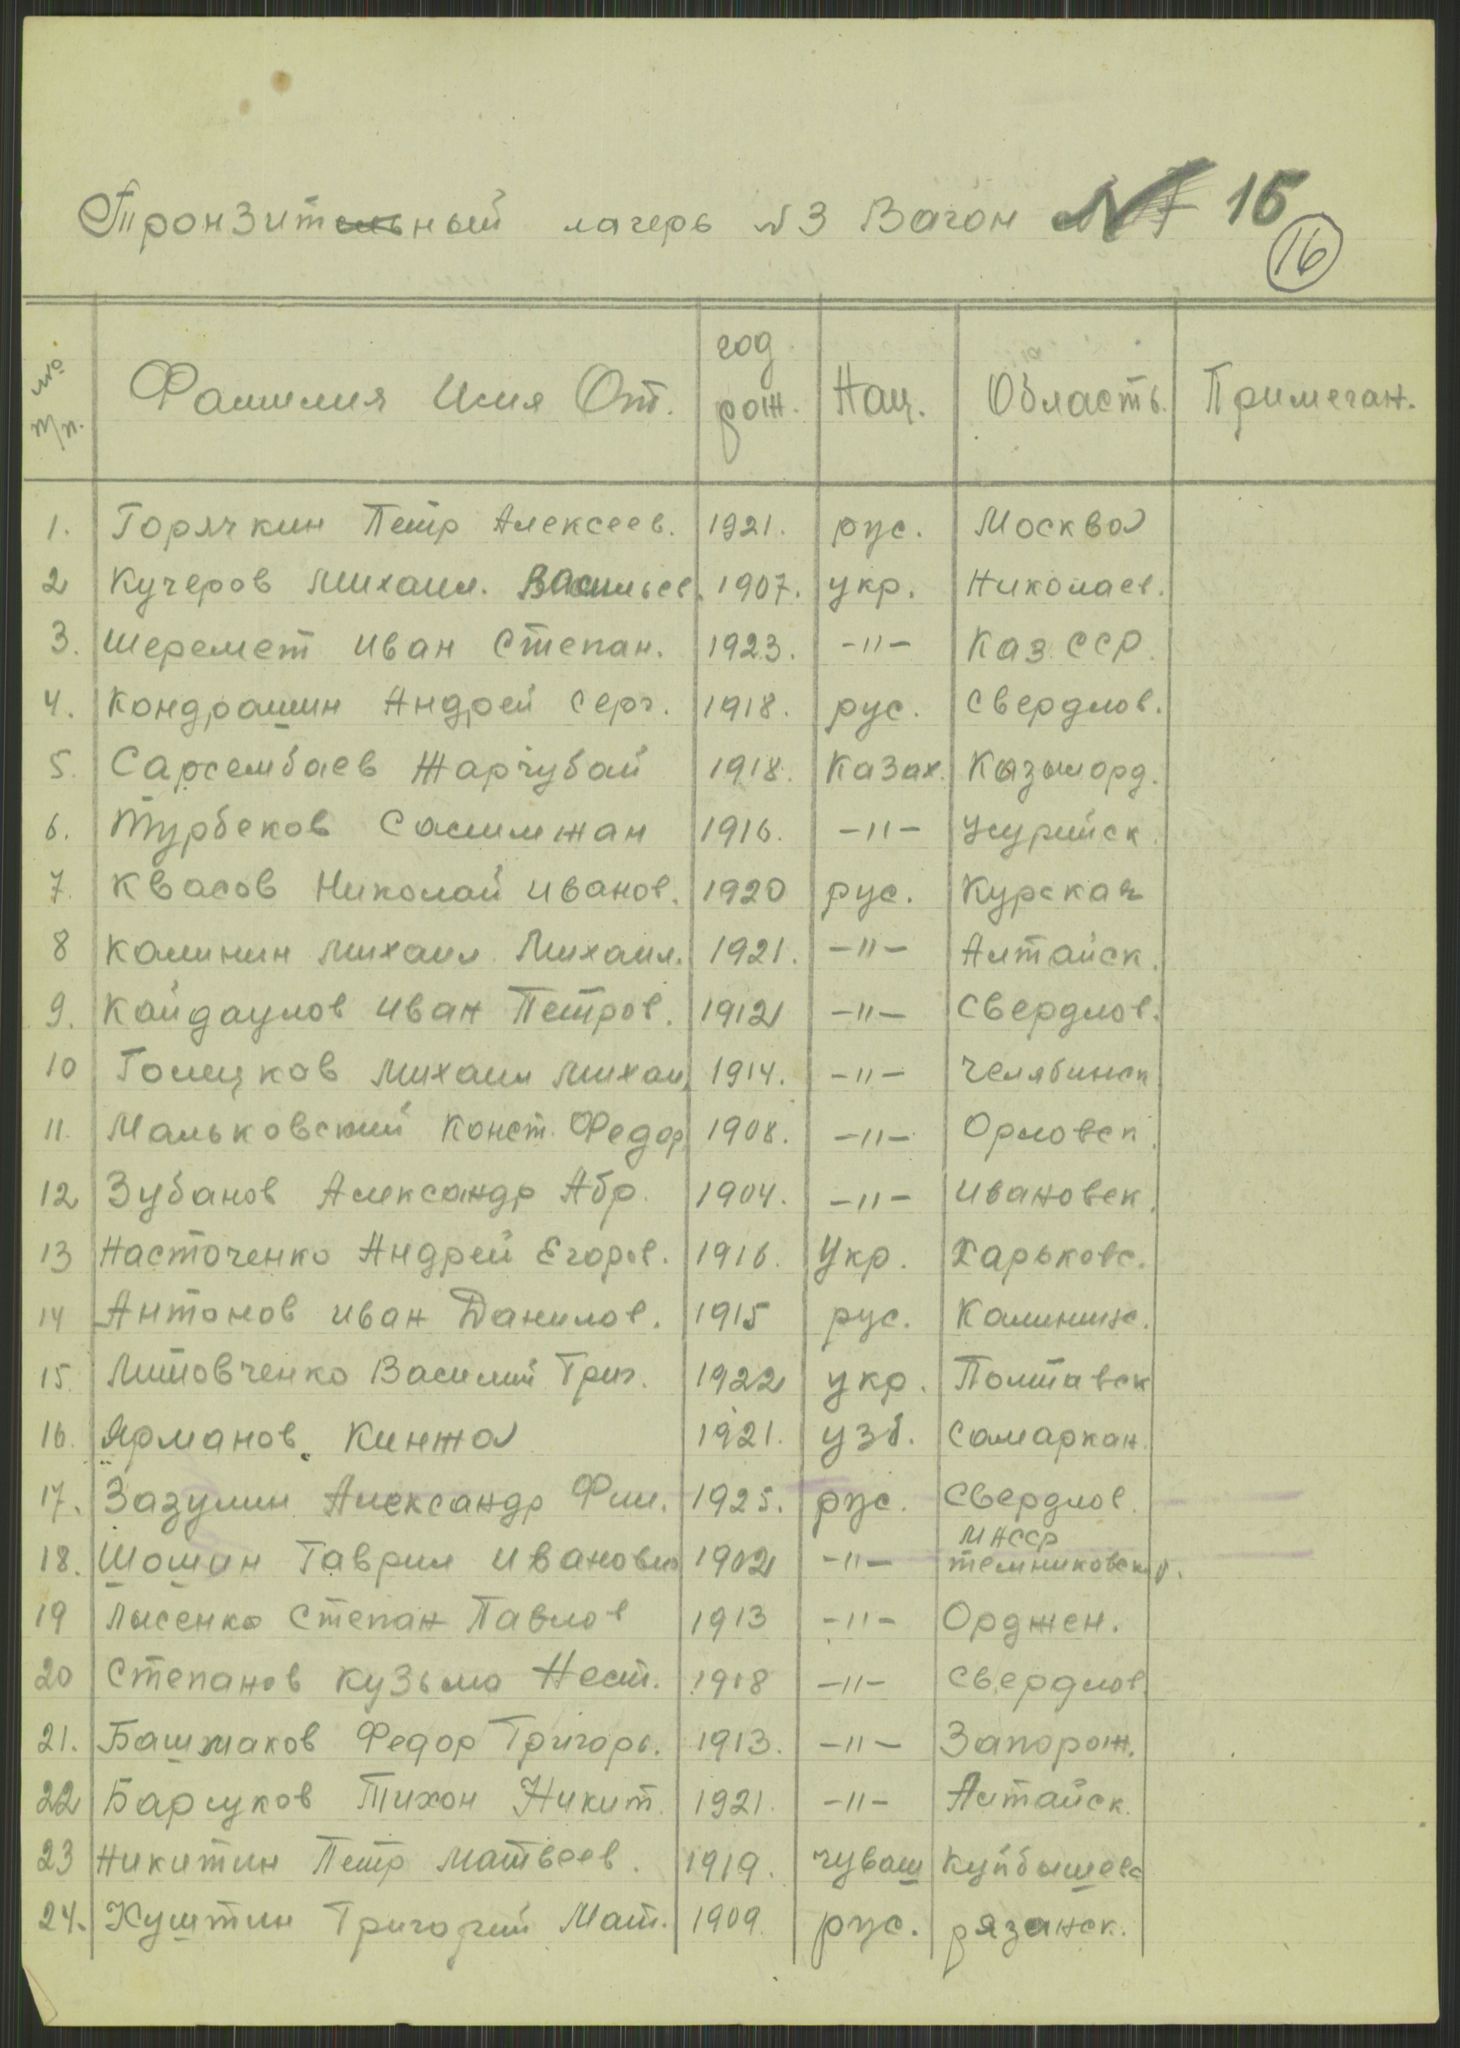 Транзитный лагерь №3 Вагон № 15
16
№ п/п. Фамилия Имя От. год рож. Нац. Область. Примечан.
1. Горячкин Петр Алексеев. 1921. рус. Москва
2 Кучеров Михаил. Васильев. 1907. укр. Николаев.
3. Шеремет Иван Степан. 1923. -"- Каз. ССР.
4. Кондрашин Андрей Серг. 1918. рус. Свердлов.
5. Сарсембаев Жаргубай 1918. Казах. Кызылорд.
6. Турбеков Салимжан 1916. -"-
7. Квасов Николай Иванов. 1920 рус. Курская
8 Калинин Михаил Михаил. 1921. -"- Алтайск.
9. Кайдаулов Иван Петров. 1912 -"- Свердлов.
10 Голицков Михаил Михаи 1914. -"- Челябинск
11. Мальковский Конст. Федор 1908. -"- Орловск.
12 Зубанов Александр Абр. 1904. -"- Ивановск.
13 Насточенко Андрей Егоров. 1916. Укр. Харьковс.
14 Антонов Иван Данилов. 1915 рус. Калининс.
15. Литовченко Василий Григ. 1922 укр. Полтавск
16. Ярманов. Кинжа 1921. узб. Самаркан.
17. Зазулин Александр Фил. 1925. рус. Свердлов.
18. Шошин Гаврил Иванович 1902 -"- МАССР Темниковск р.
19 Лысенко Степан Павлов 1913 -"- Орджен.
20 Степанов Кузьма Нест. 1918 -"- Свердлов.
21. Башмаков Федор Григорь. 1913. -"- Запорож.
22 Барсуков Тихон Никит. 1921. -"- Алтайск.
23 Никитин Петр Матвеев. 1919. чуваш Куйбышевс
24. Куштин Григорий Мат. 1909. рус. рязанск.